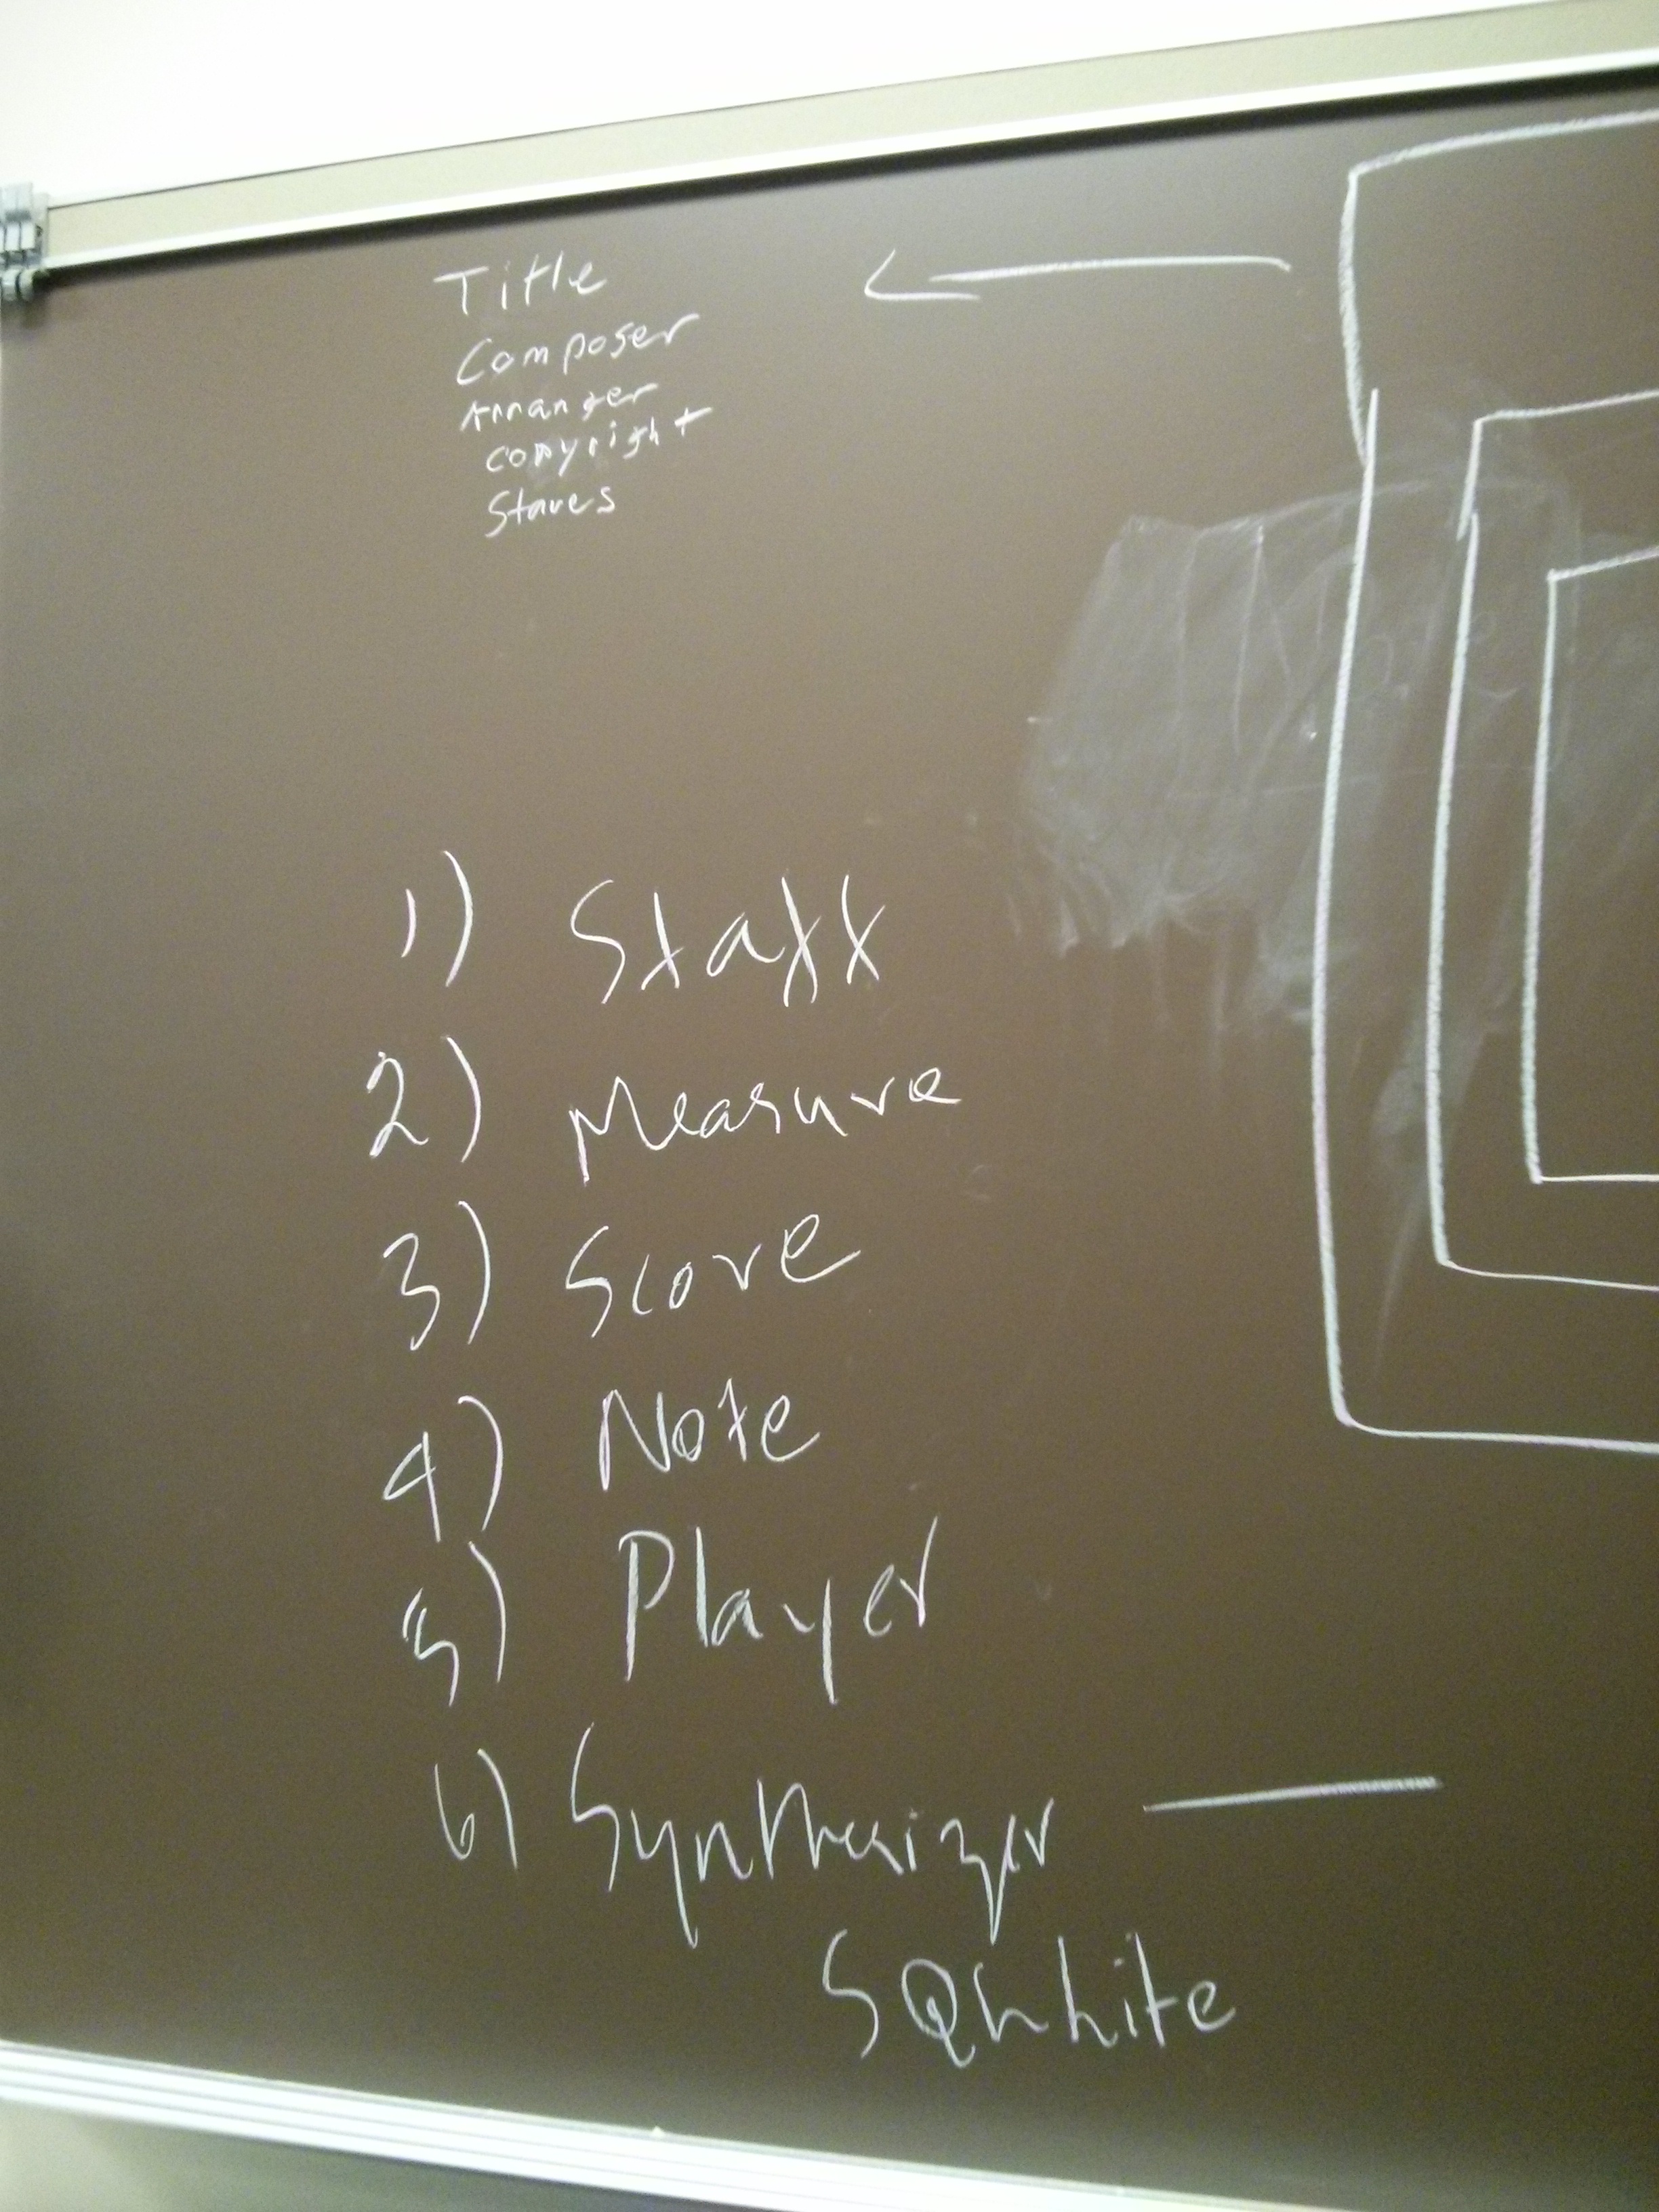 Title
Composer
Arranger
Copyright
Staves
1) Staff
2) Measure
3) Score
4) Note
5) Player
6) Synthesizer
SQLLite